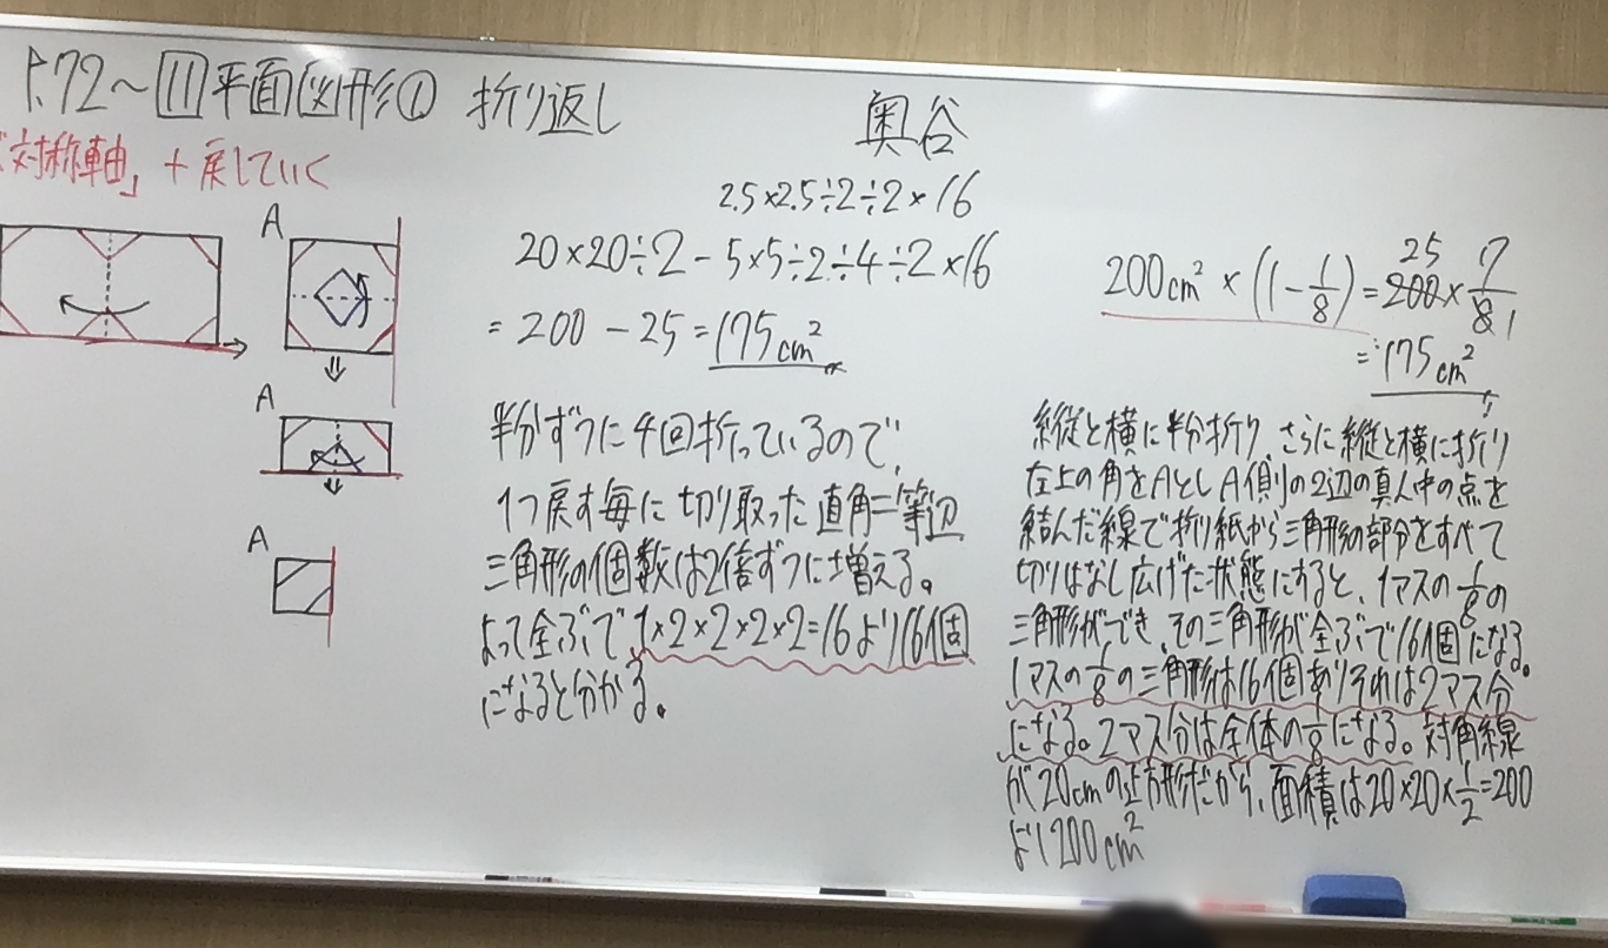 P.72〜 11 平面図形① 折り返し
奥谷
「対称軸」+戻していく
A
A
A
2.5×2.5÷2÷2×16
20×20÷2-5×5÷2÷4÷2×16
=200-25=175cm²
半分ずつに4回折っているので、
1つ戻す毎に切り取った直角二等辺
三角形の個数は2倍ずつに増える。
よって全ぶで1×2×2×2×2=16より16個
になると分かる。
200cm²×(1-1/8)=200×7/8
25
1
=175cm²
縦と横に半分折り、さらに縦と横に折り
左上の角をAとしA側の2辺の真ん中の点を
結んだ線で折り紙から三角形の部分をすべて
切りはなし広げた状態にすると、1マスの1/8の
三角形ができ、その三角形が全ぶで16個になる。
1マスの1/8の三角形は16個ありそれは2マス分
になる。2マス分は全体の1/8になる。対角線
が20cmの正方形だから、面積は20×20×1/2=200
より200cm²